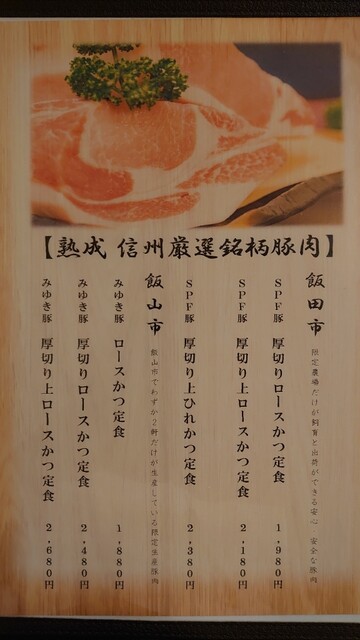 【熟成 信州厳選銘柄豚肉】
飯田市
限定農場だけが飼育と出荷ができる安心 安全な豚肉
SPF豚 厚切りロースかつ定食 1,980円
SPF豚 厚切り上ロースかつ定食 2,180円
SPF豚 厚切り上ひれかつ定食 2,380円
飯山市
飯山市でわずか2軒だけが生産している限定生産豚肉
みゆき豚 ロースかつ定食 1,880円
みゆき豚 厚切りロースかつ定食 2,480円
みゆき豚 厚切り上ロースかつ定食 2,680円